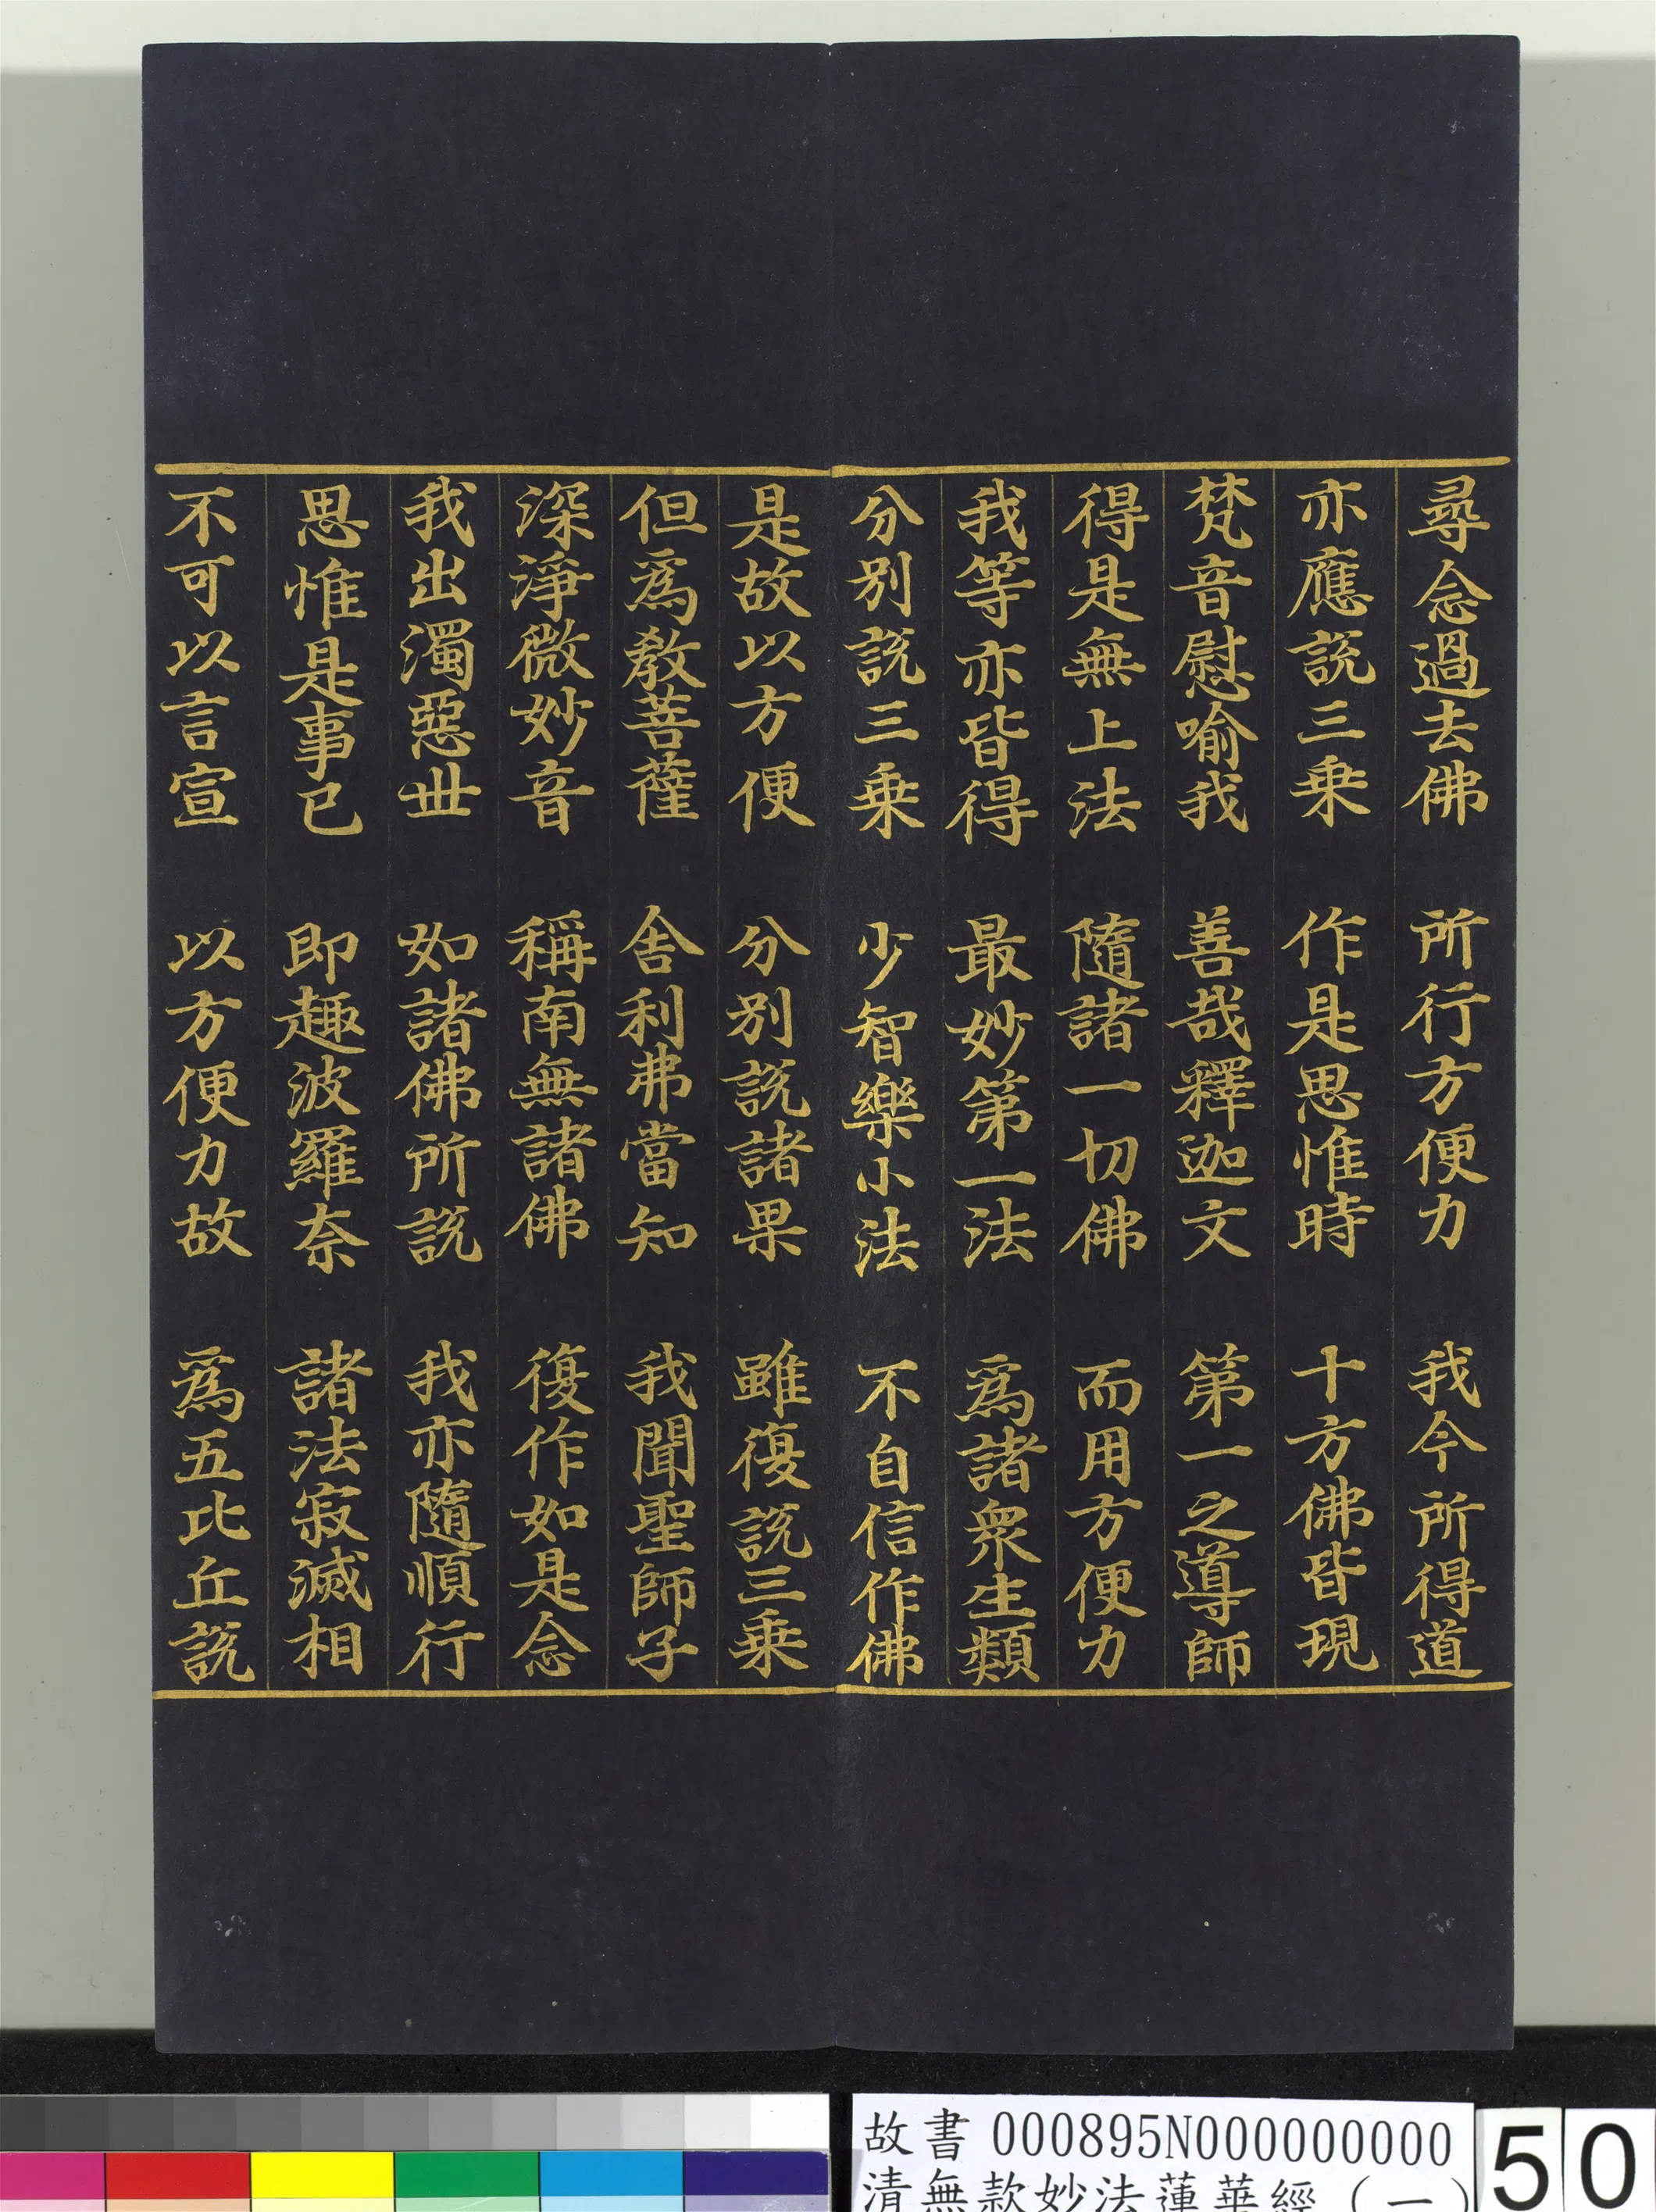 尋念過去佛　所行方便力　我今所得道
亦應說三乗　作是思惟時　十方佛皆現
梵音慰喻我　善哉釋迦文　第一之導師
得是無上法　隨諸一切佛　而用方便力
我等亦皆得　最妙第一法　爲諸衆生類
分別說三乗　少智樂小法　不自信作佛
是故以方便　分别說諸果　雖復說三乗
但爲教菩薩　舍利弗當知　我聞聖師子
深淨微妙音　稱南無諸佛　復作如是念
我出濁惡世　如諸佛所說　我亦隨順行
思惟是事已　即趣波羅奈　諸法寂滅相
不可以言宣　以方便力故　爲五比丘說
故書 000895N000000000
清無款妙法蓮華經(一)
50